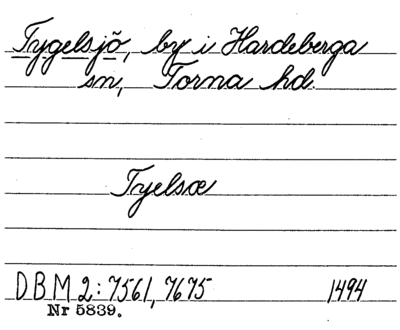 Tygelsjö, by i Hardeberga
sn, Torna hd.
Tyelsœ
DBM 2: 7561, 7675 1494
Nr 5839.